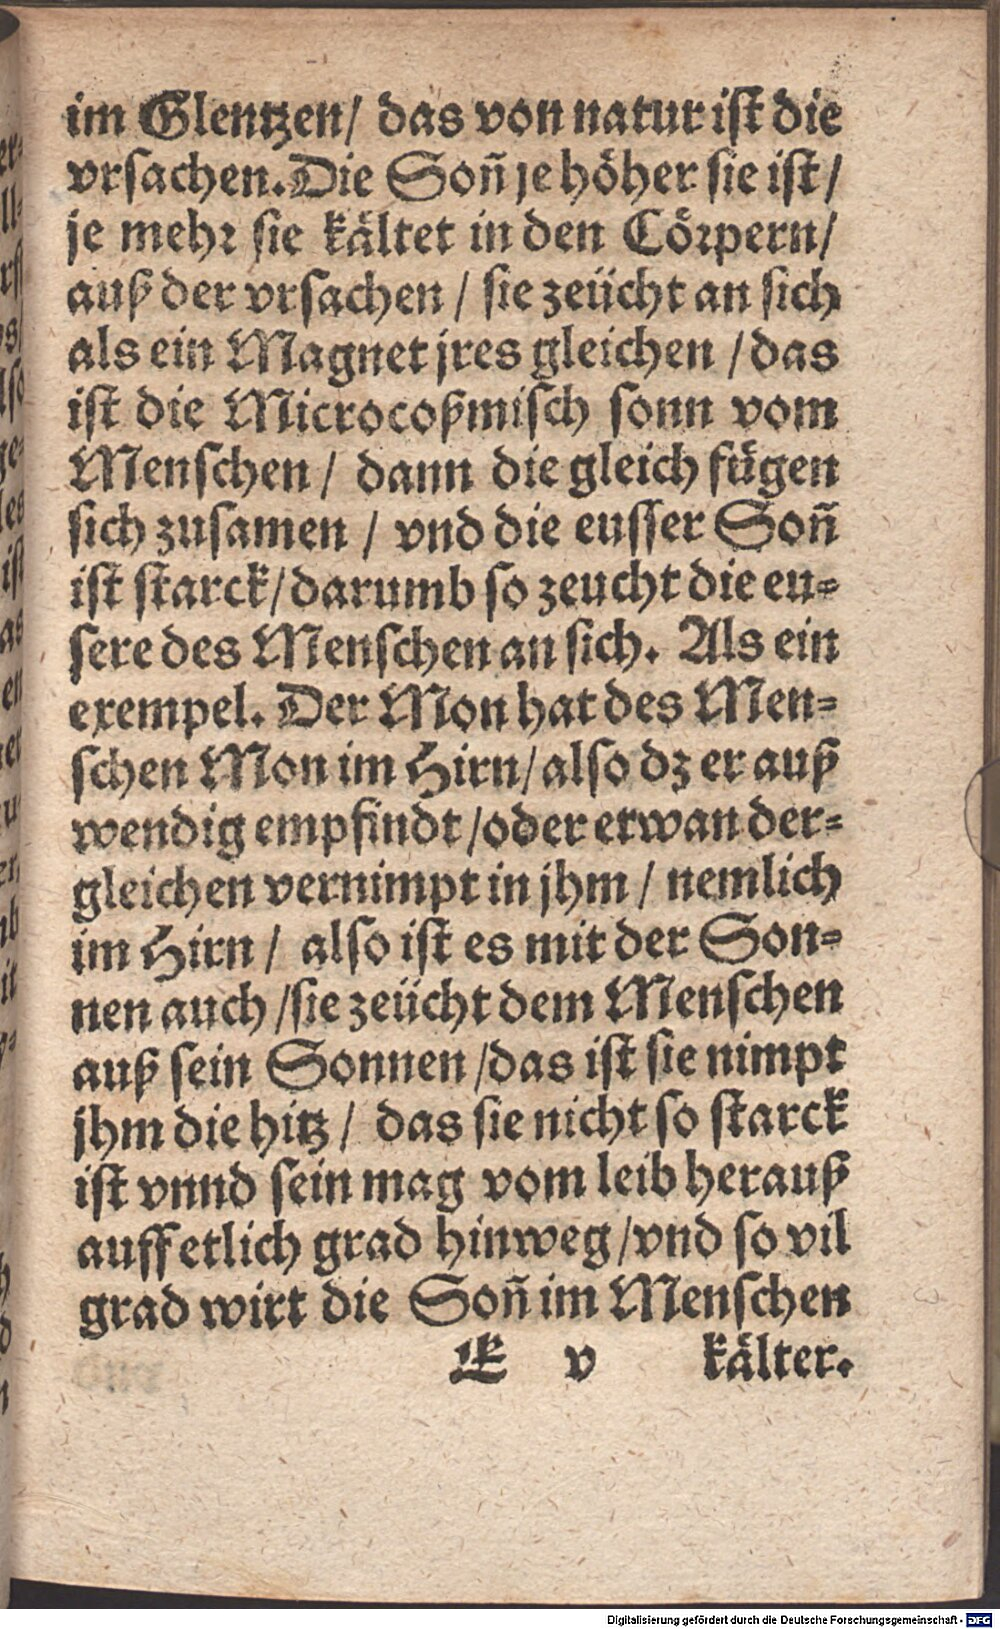 im Glentzen/ das von natur ist die
vrsachen. Die Soñ je höher sie ist/
je mehr sie kältet in den Cörpern/
auß der vrsachen / sie zeücht an sich
als ein Magnet jres gleichen / das
ist die Microcoßmisch sonn vom
Menschen / dann die gleich fügen
sich zusamen / vnd die eusser Soñ
ist starck/ darumb so zeucht die eu-
sere des Menschen an sich. Als ein
exempel. Der Mon hat des Men-
schen Mon im Hirn/ also dz er auß
wendig empfindt / oder etwan der-
gleichen vernimpt in jhm / nemlich
im Hirn / also ist es mit der Son-
nen auch / sie zeücht dem Menschen
auß sein Sonnen / das ist sie nimpt
jhm die hitz / das sie nicht so starck
ist vnnd sein mag vom leib herauß
auff etlich grad hinweg / vnd so vil
grad wirt die Soñ im Menschen
E v kälter.
Digitalisierung gefördert durch die Deutsche Forschungsgemeinschaft - DFG